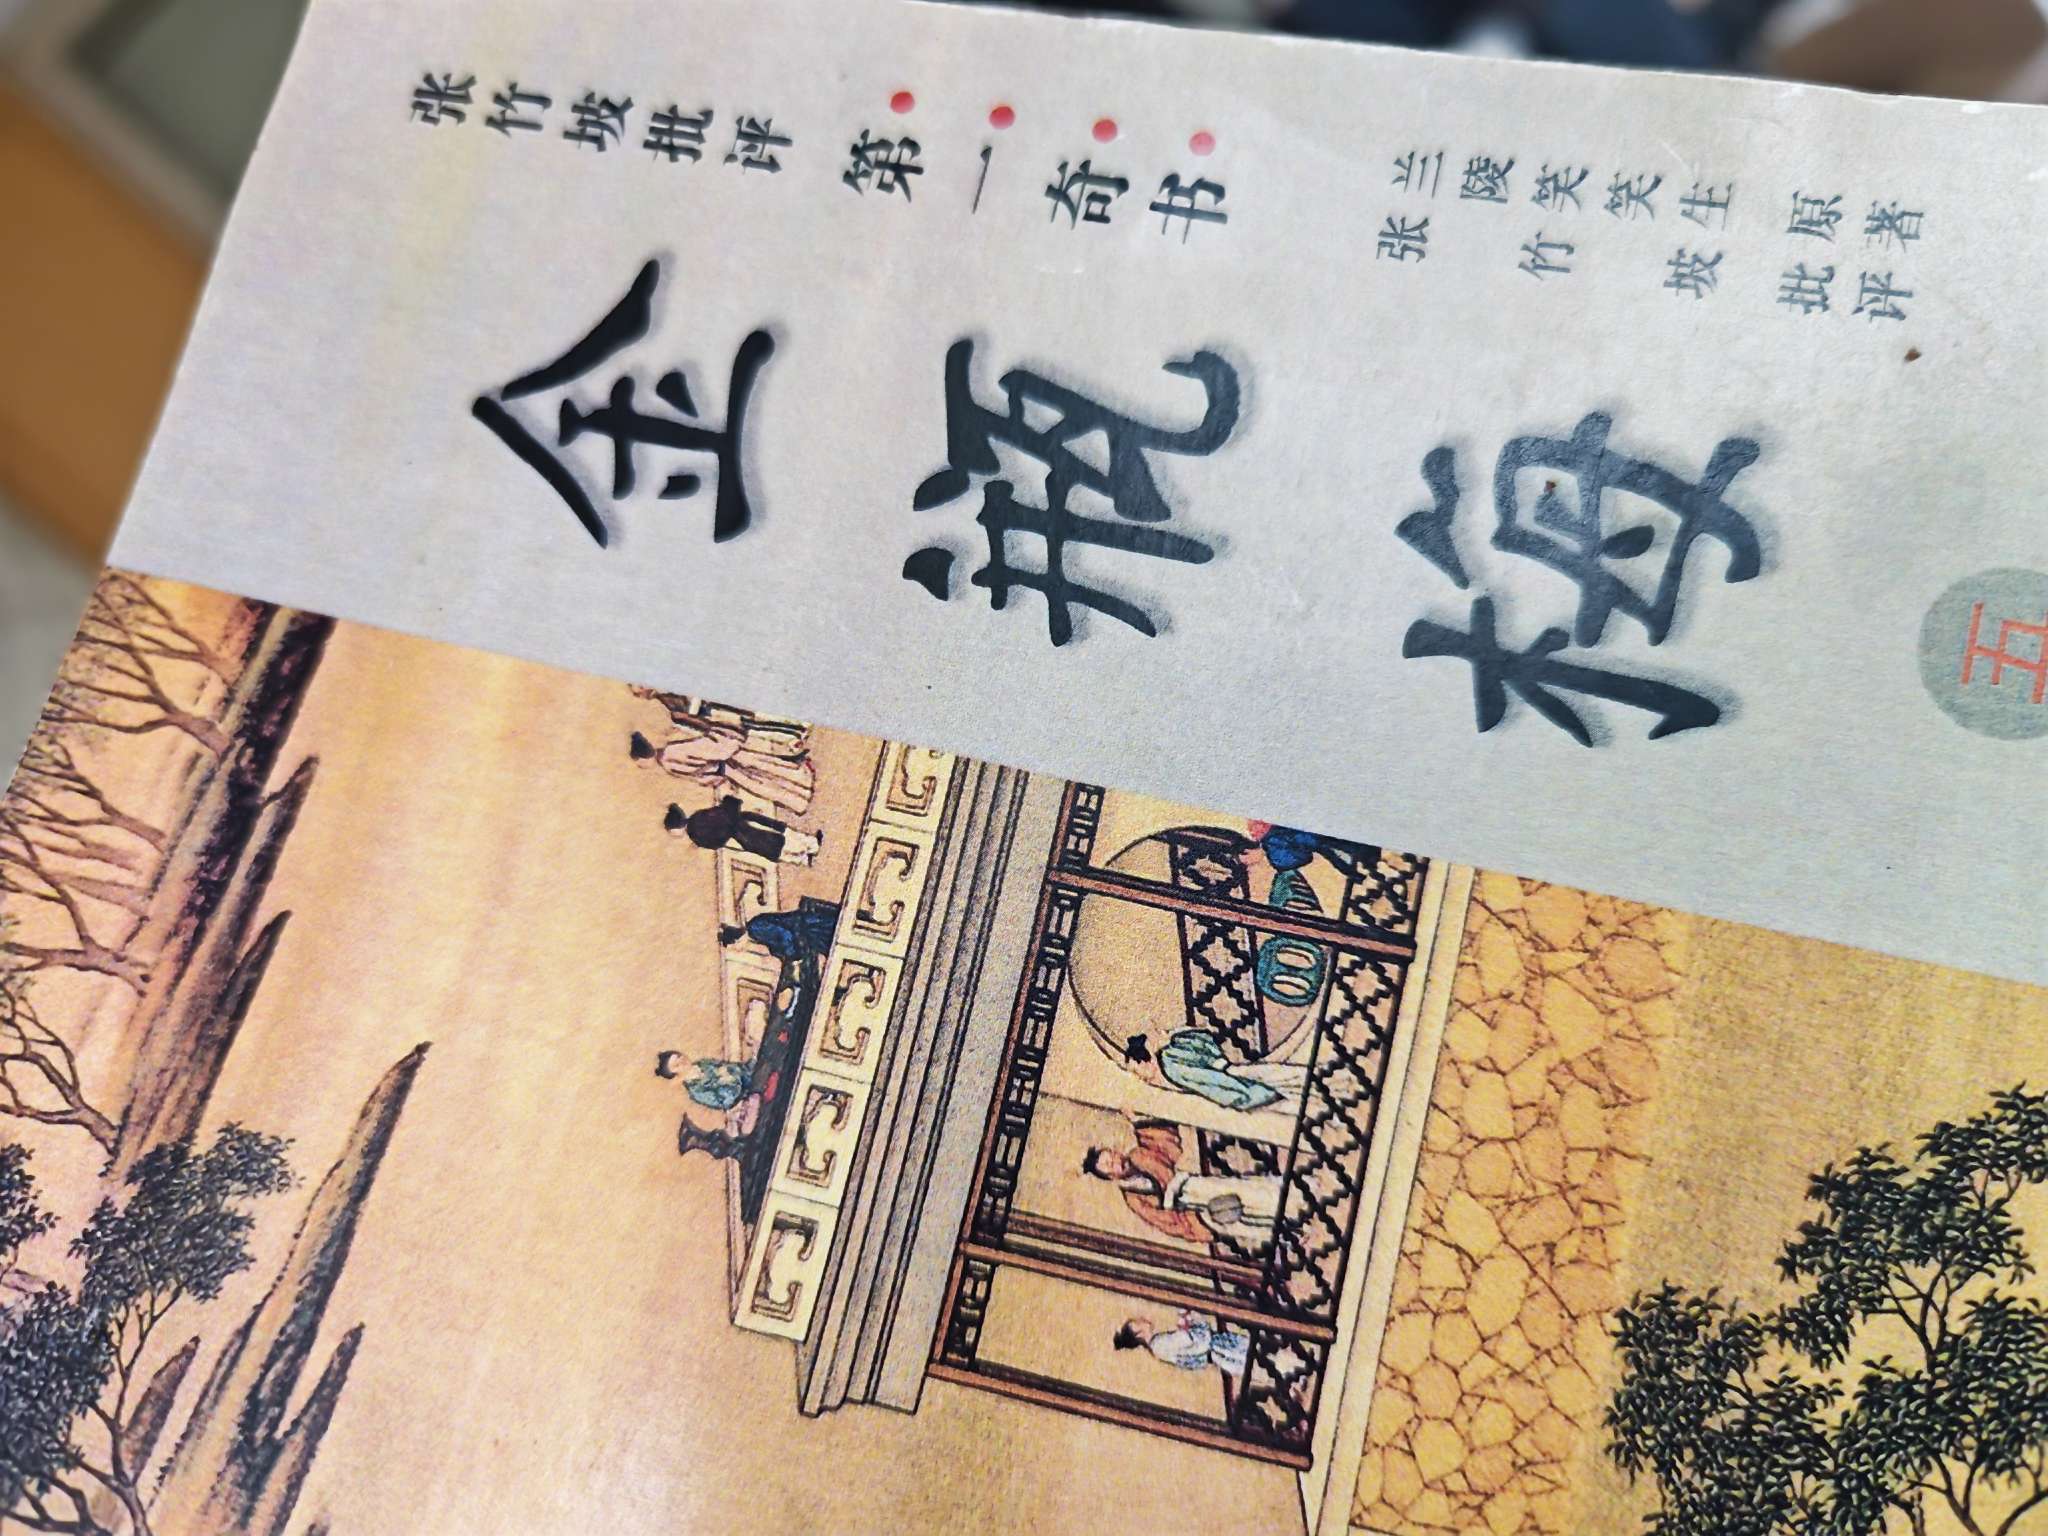 张竹坡批评
第一奇书
金瓶梅
兰陵笑笑生 原著
张竹坡 批评
五